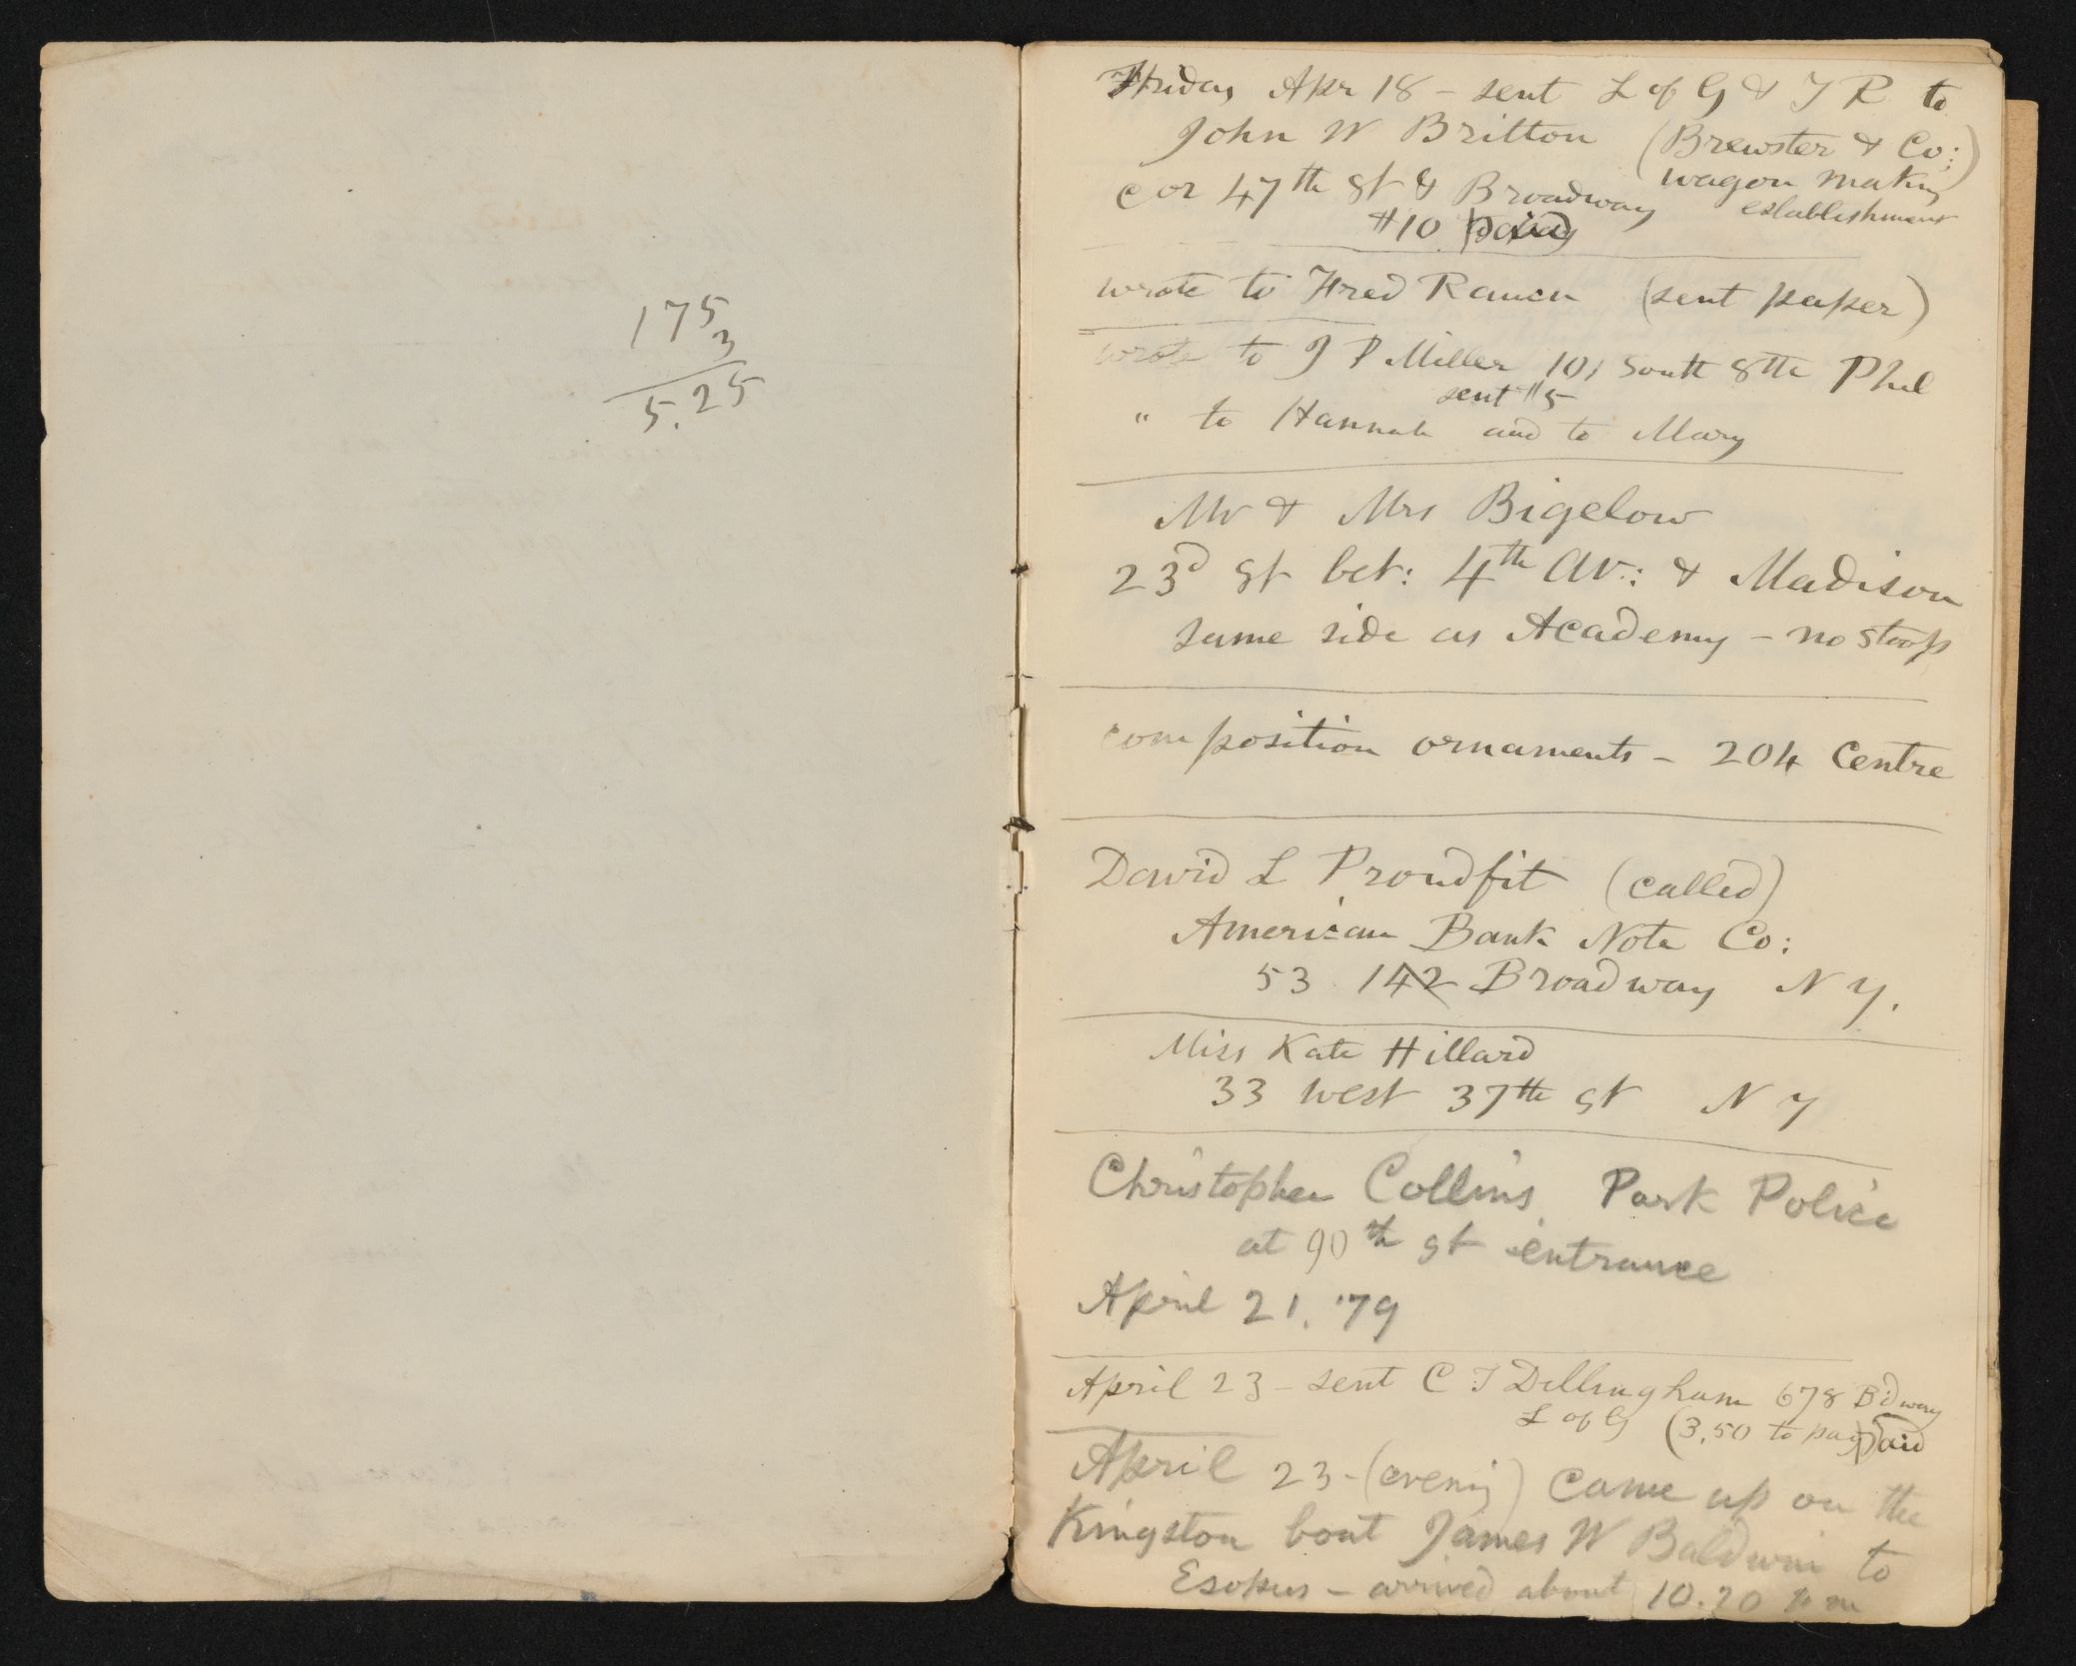 175
3
5.25
Friday Apr 18 – sent L of G & T R to
John W Britton (Brewster & Co:)
wagon making
cor 47th st & Broadway establishment
#10 paid
wrote to Fred Rauch (sent paper)
wrote to J P Miller 101 South 8th Phil
sent $5
" to Hannah and to Mary
Mr & Mrs Bigelow
23d st bet: 4th av: & Madison
same side as Academy – no stoop
composition ornaments – 204 Centre
David L Proudfit (called)
American Bank Note Co:
53 142 Broadway N Y.
Miss Kate Hillard
33 west 37th st N Y
Christopher Collins, Park Police
at 90th st entrance
April 21, '79
April 23 – sent C T Dillingham 678 B'dway
L of G (3,50 to pay) paid
April 23 – (evening) came up on the
Kingston boat James W Baldwin to
Esopus – arrived about 10.20 p m